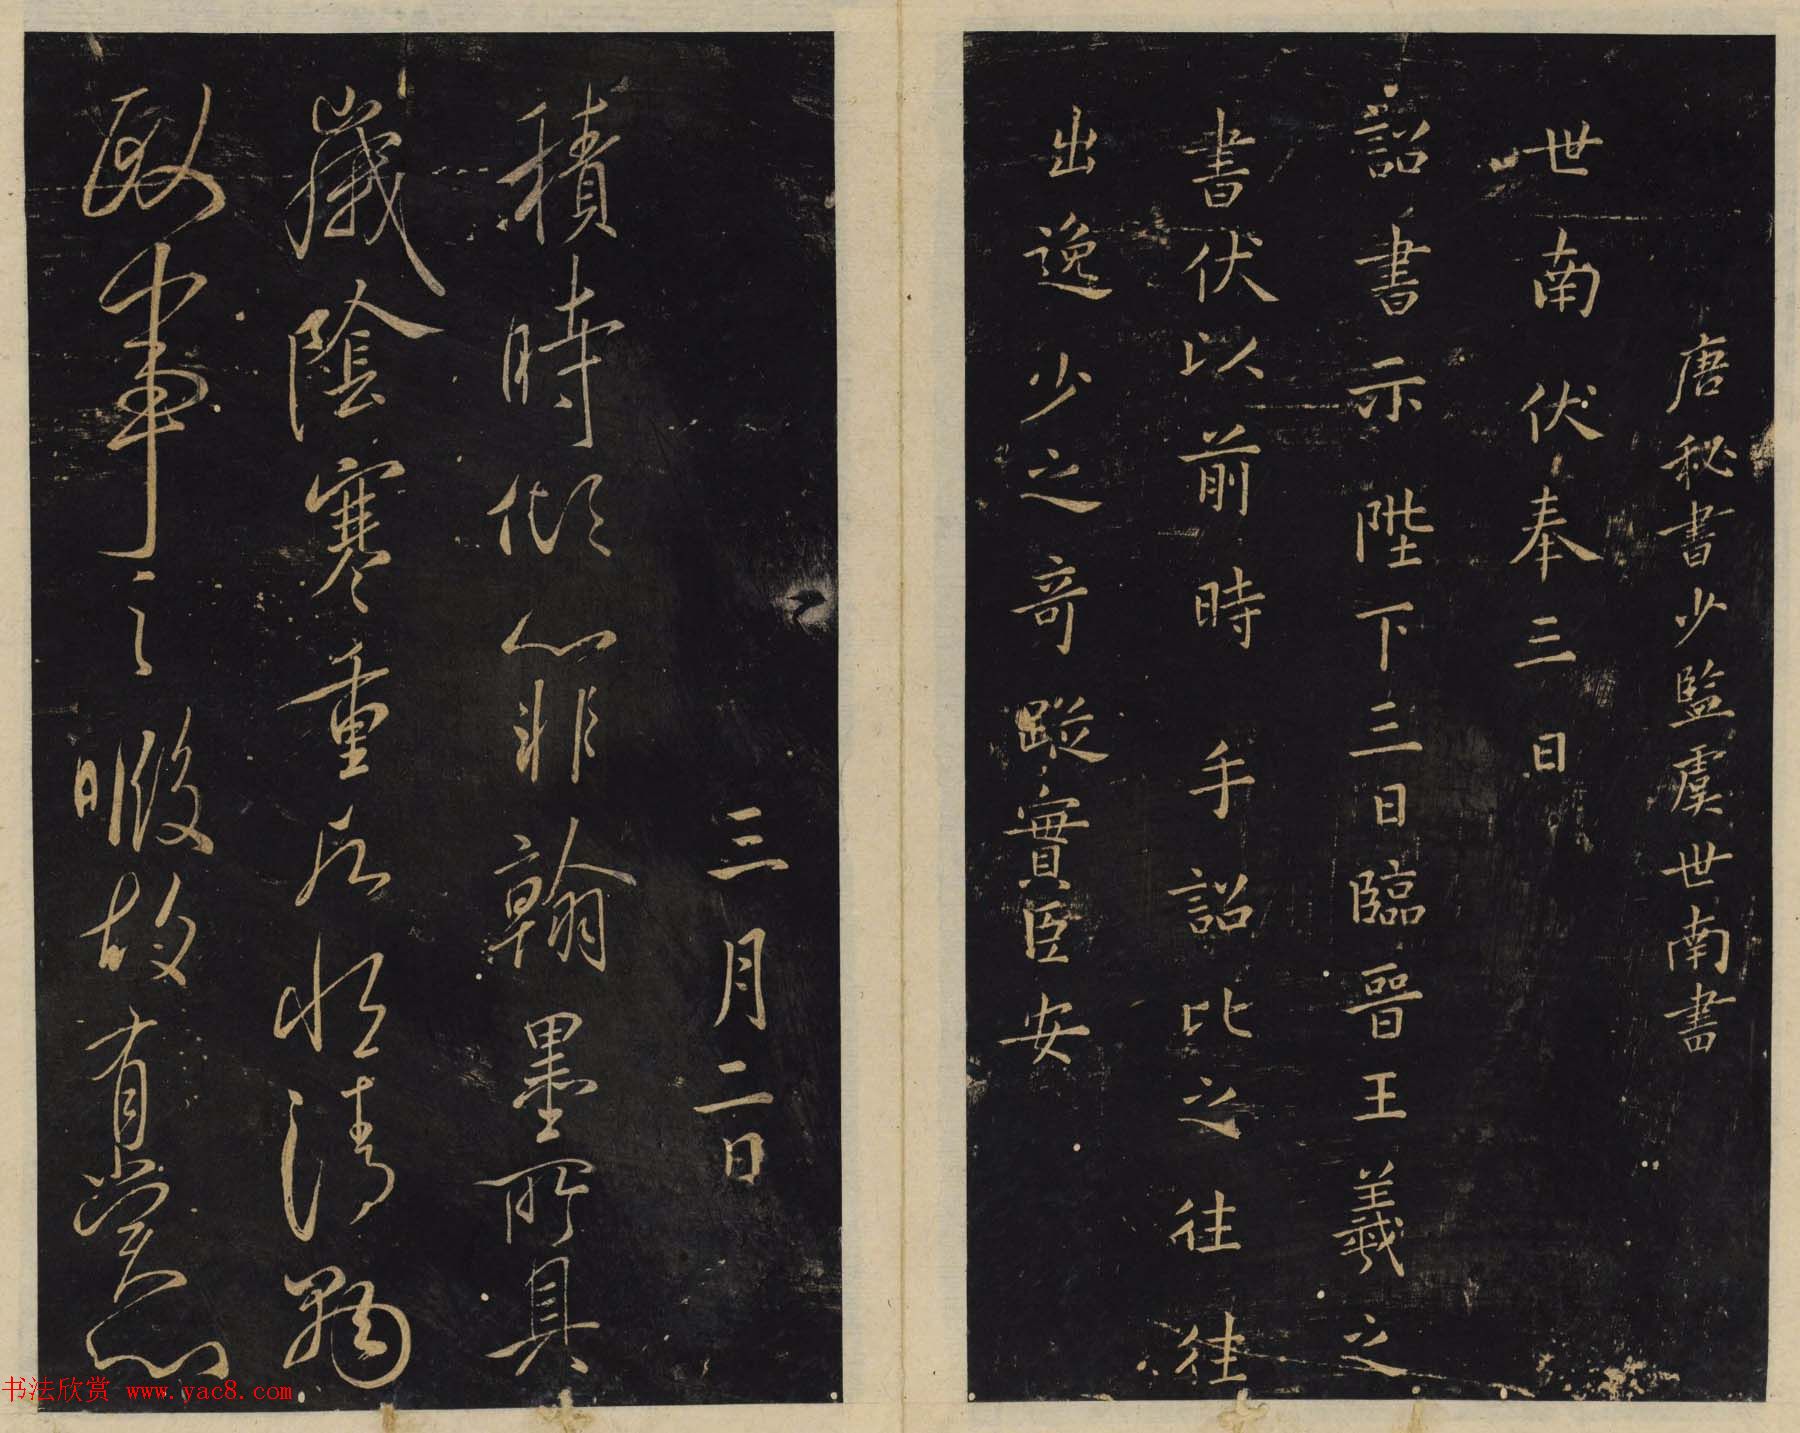 唐秘書少監虞世南書
世南伏奉三日
詔書示陛下三日臨晉王羲之
書伏以前時手詔比之往往
出逸少之竒蹤實臣安
三月二日
積時傾心非翰墨所具
歲陰寒重清
政事之暇故有賞心
书法欣赏 www.yac8.com